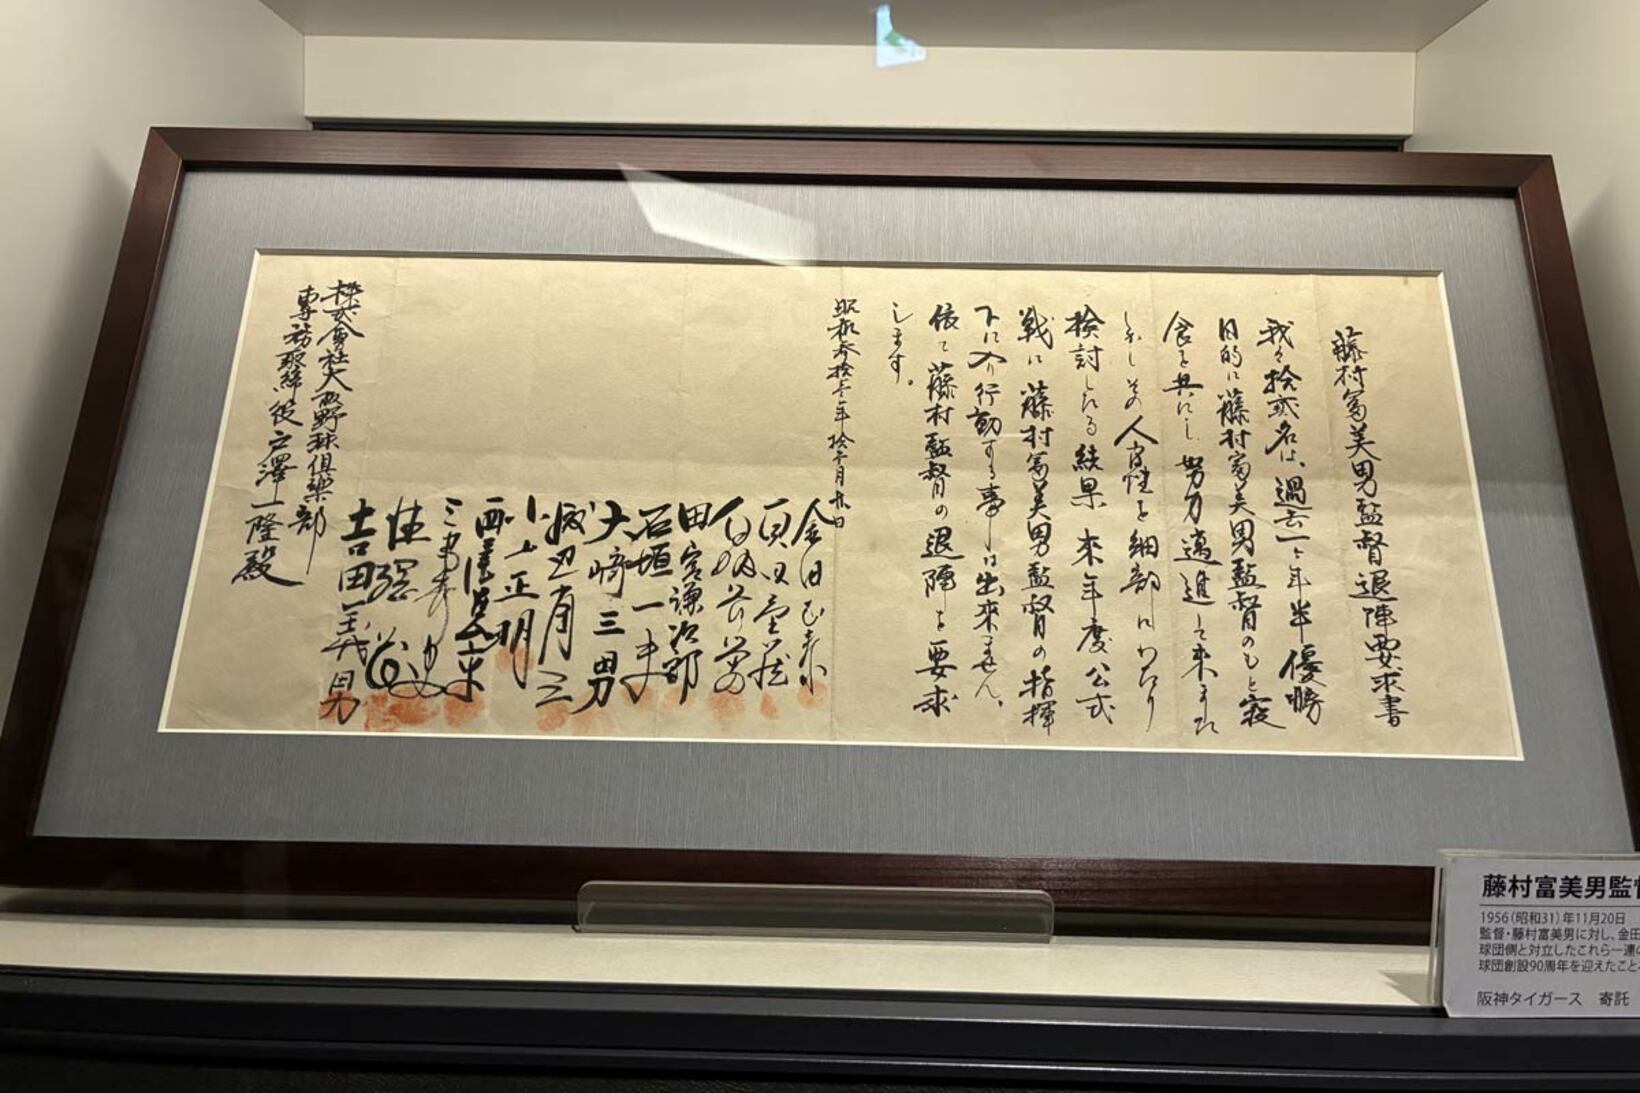 藤村冨美男監督退陣要求書
我々拾弐名は、過去一ヶ年半優勝
目的に藤村冨美男監督のもと寝
食を共にし努力邁進して来ました
しかしその人間性を細部にわたり
検討したる結果来年度公式
戦に藤村冨美男監督の指揮
下に入り行動する事は出来ません。
依て藤村監督の退陣を要求
します。
昭和参拾壱年拾一月廿日
金田正泰
真田重蔵
白坂長栄
田宮謙次郎
石垣一夫
大崎三男
渡辺省三
小山正明
西澤
三
徳網
吉田義男
株式會社大阪野球倶楽部
専務取締役戸澤一隆殿
藤村富美男監
1956(昭和31)年11月20日
監督・藤村富美男に対し、金田
球団側と対立したこれら一連の
球団創設90周年を迎えたこと
阪神タイガース 寄託